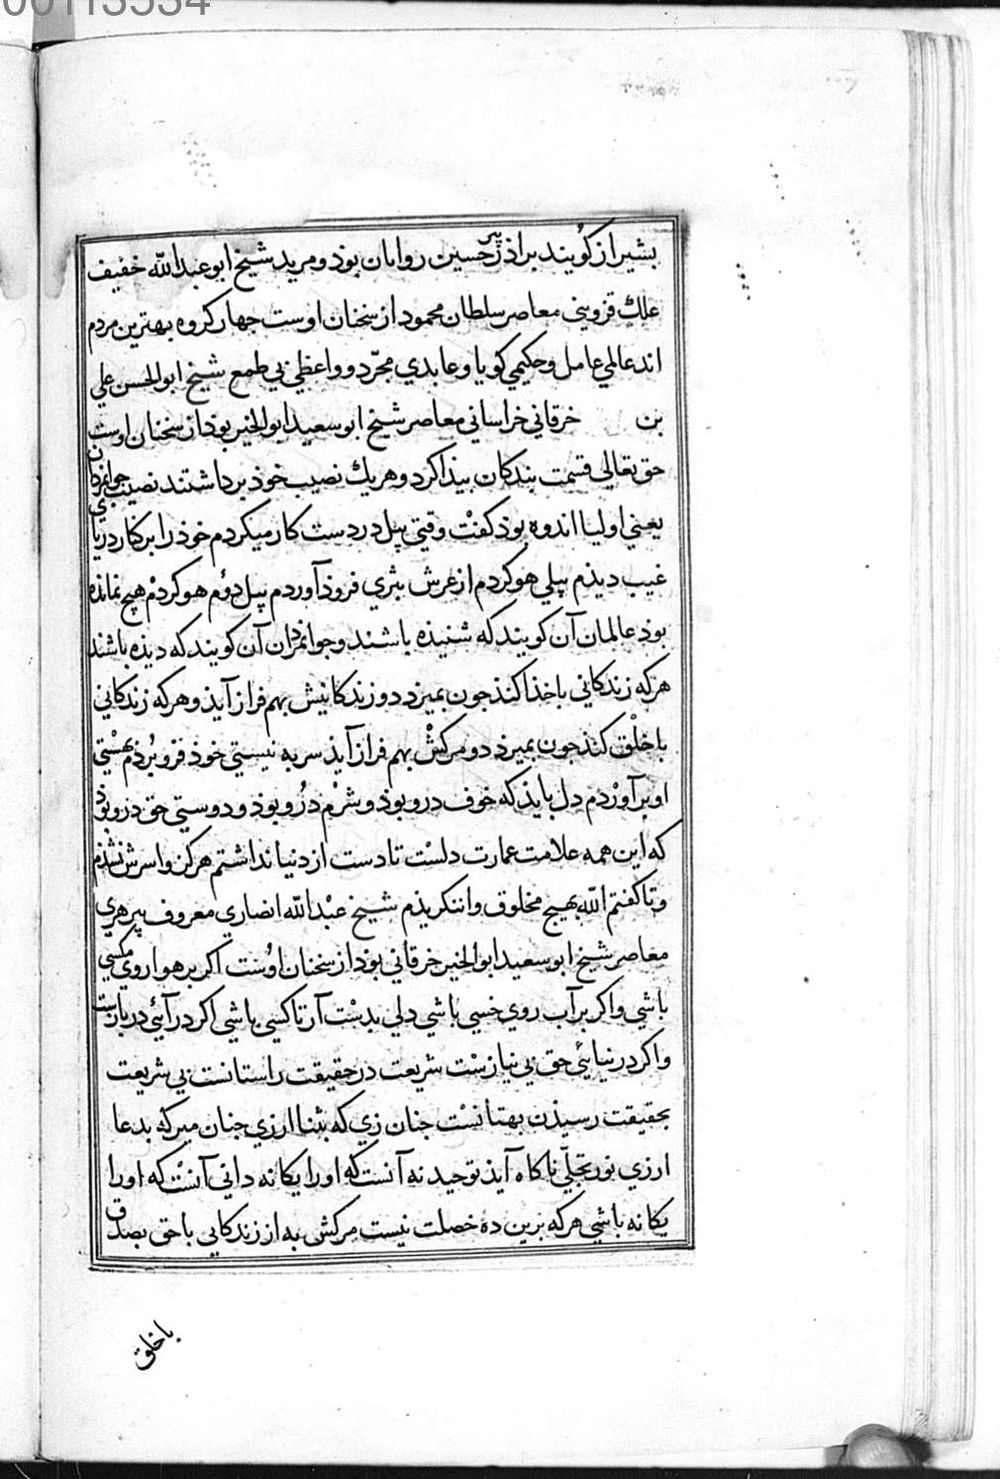 00113534
بشیراز کویند براذر پیر حسین روانان بوذ و مرید شیخ ابو عبدالله خفیف
علك قزوینی معاصر سلطان محمود از سخنان اوست جهار کروه بهترین مردم
اند عالمی عامل و حکیمی کویا و عابدی مجرّد و واعظی بی طمع شیخ ابوالحسن علی
بن خرقانی خراسانی معاصر شیخ ابو سعید ابوالخیر بوذ از سخنان اوست
حق تعالی قسمت بندکان بیندا کرد و هریك نصیب خوذ برداشتند نصیب جوانمردان
یعنی اولیا اندوه بوذ کفت وقتی بیل در دست کار میکردم خوذ را بر کنار دریای
غیب دیذم بیلی هو کردم از عرش بثری فروذ آوردم بیل دوُم هو کردم هیچ نمانده
بوذ عالمان آن کویند که شنیذه باشند و جوانمردان آن کویند که دیذه باشند
هرکه زندکانی با خذا کنذ جون بمیرد دو زندکانیش بهم فراز آیذ و هرکه زندکانی
با خلق کنذ جون بمیرذ دو مرکش بهم فراز آیذ سر به نیستی خوذ فرو بُرذم بهستی
او برآوردم دل بایذ که خوف درو بوذ و شرم درُو بوذ و دوستی حق درو بوذ
که این همه علامت عمارت دلست تا دست از دنیا نداشتم هرکز وا سرش نشذم
و تا کفتم الله بهیچ مخلوق وا ننکریذم شیخ عبدالله انصاری معروف بپر هری
معاصر شیخ ابو سعید ابوالخیر خرقانی بوذ از سخنان اوُست اکر بر هوا روی مکسی
باشی و اکر بر آب روی خسی باشی دلی بدست آر تا کسی باشی اکر در آیی در بازست
و اکر در نیایی حق بی نیازست شریعت در حقیقت راستانست بی شریعت
بحقیقت رسیذن بهتانست جنان زی که بثنا ارزی جنان میر که بدعا
ارزی نور تجلّی ناکاه آیذ توحید نه آنست که او را یکانه دانی آنست که او را
یکانه باشی هرکه برین ده خصلت نیست مرکش به از زندکانی با حق بصدق
با خلق